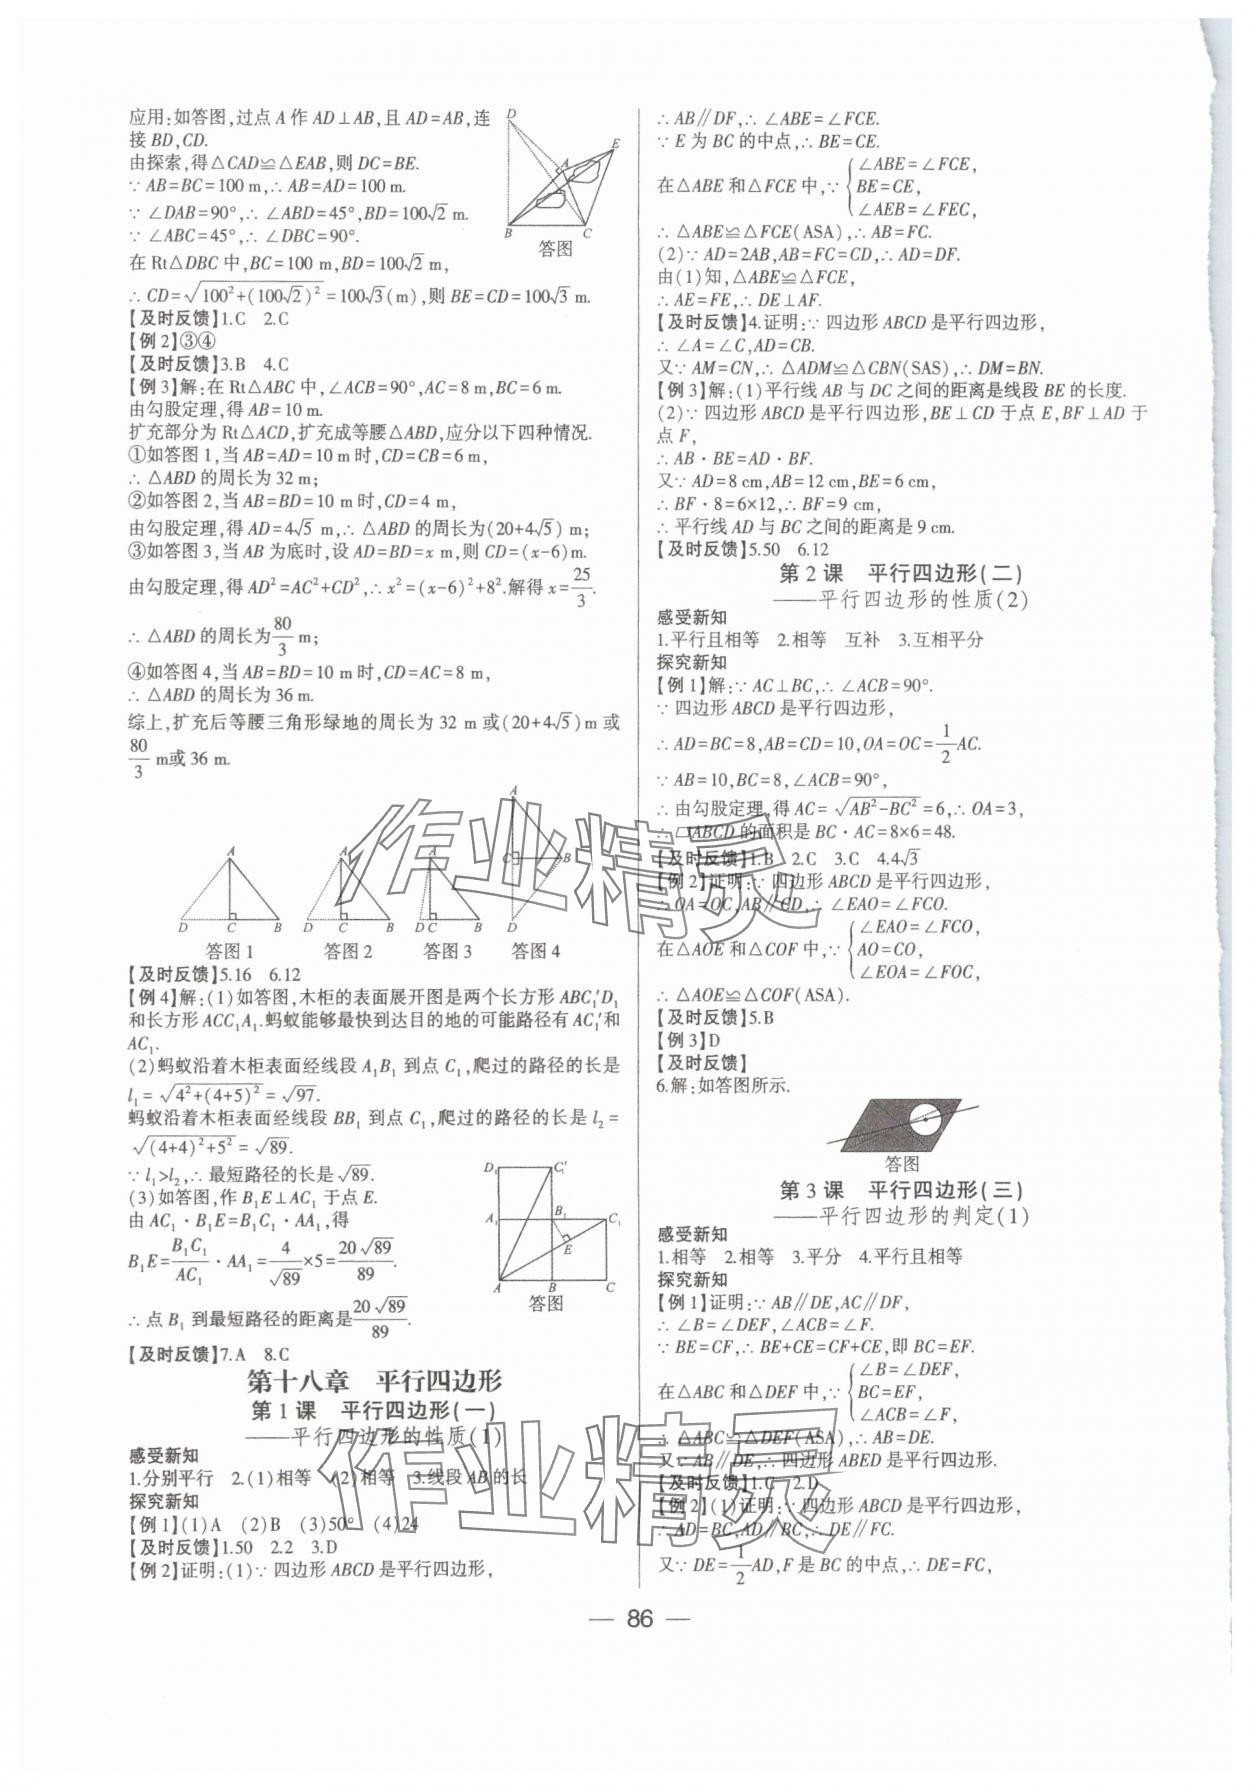 应用:如答图,过点 A 作 AD⊥AB,且 AD=AB,连
接 BD,CD.
由探索,得△CAD≌△EAB,则 DC=BE.
∵ AB=BC=100 m,∴ AB=AD=100 m.
∵ ∠DAB=90°,∴ ∠ABD=45°,BD=100√2 m.
∵ ∠ABC=45°,∴ ∠DBC=90°.
在 Rt△DBC 中,BC=100 m,BD=100√2 m,
∴ CD=√(100²+(100√2)²)=100√3(m),则 BE=CD=100√3 m.
D
E
A
B
C
答图
【及时反馈】1.C 2.C
【例 2】③④
【及时反馈】3.B 4.C
【例 3】解:在 Rt△ABC 中,∠ACB=90°,AC=8 m,BC=6 m.
由勾股定理,得 AB=10 m.
扩充部分为 Rt△ACD,扩充成等腰△ABD,应分以下四种情况.
①如答图 1,当 AB=AD=10 m时,CD=CB=6 m,
∴ △ABD 的周长为 32 m;
②如答图 2,当 AB=BD=10 m 时,CD=4 m,
由勾股定理,得 AD=4√5 m,∴ △ABD 的周长为(20+4√5) m;
③如答图 3,当 AB 为底时,设 AD=BD=x m,则 CD=(x-6)m.
由勾股定理,得 AD²=AC²+CD²,∴ x²=(x-6)²+8².解得 x=25/3.
∴ △ABD 的周长为80/3 m;
④如答图 4,当 AB=BD=10 m时,CD=AC=8 m,
∴ △ABD 的周长为 36 m.
综上,扩充后等腰三角形绿地的周长为 32 m 或(20+4√5)m 或
80/3 m或 36 m.
A
A
A
A
D C B
D C B
D C B
C B
D
答图 1 答图 2 答图 3 答图 4
【及时反馈】5.16 6.12
【例 4】解:(1)如答图,木柜的表面展开图是两个长方形 ABC₁′D₁
和长方形 ACC₁A₁.蚂蚁能够最快到达目的地的可能路径有 AC₁′和
AC₁.
(2)蚂蚁沿着木柜表面经线段 A₁B₁ 到点 C₁,爬过的路径的长是
l₁=√(4²+(4+5)²)=√97.
蚂蚁沿着木柜表面经线段 BB₁ 到点 C₁,爬过的路径的长是 l₂=
√((4+4)²+5²)=√89.
∵ l₁>l₂,∴ 最短路径的长是√89.
(3)如答图,作 B₁E⊥AC₁ 于点 E.
由 AC₁·B₁E=B₁C₁·AA₁,得
B₁E=B₁C₁/AC₁·AA₁=4/√89×5=20√89/89.
∴ 点 B₁ 到最短路径的距离是20√89/89.
D₁ C₁′
A₁ B₁ C₁
E
A B C
答图
【及时反馈】7.A 8.C
第十八章 平行四边形
第 1 课 平行四边形(一)
——平行四边形的性质(1)
感受新知
1.分别平行 2.(1)相等 (2)相等 3.线段 AB 的长
探究新知
【例 1】(1)A (2)B (3)50° (4)24
【及时反馈】1.50 2.2 3.D
【例 2】证明:(1)∵ 四边形 ABCD 是平行四边形,
∴ AB∥DF,∴ ∠ABE=∠FCE.
∵ E 为 BC 的中点,∴ BE=CE.
在△ABE 和△FCE 中,∵ {∠ABE=∠FCE,
BE=CE,
∠AEB=∠FEC,
∴ △ABE≌△FCE(ASA),∴ AB=FC.
(2)∵ AD=2AB,AB=FC=CD,∴ AD=DF.
由(1)知,△ABE≌△FCE,
∴ AE=FE,∴ DE⊥AF.
【及时反馈】4.证明:∵ 四边形 ABCD 是平行四边形,
∴ ∠A=∠C,AD=CB.
又∵ AM=CN,∴ △ADM≌△CBN(SAS),∴ DM=BN.
【例 3】解:(1)平行线 AB 与 DC 之间的距离是线段 BE 的长度.
(2)∵ 四边形 ABCD 是平行四边形,BE⊥CD 于点 E,BF⊥AD 于
点 F,
∴ AB·BE=AD·BF.
又∵ AD=8 cm,AB=12 cm,BE=6 cm,
∴ BF·8=6×12,∴ BF=9 cm,
∴ 平行线 AD 与 BC 之间的距离是 9 cm.
【及时反馈】5.50 6.12
第 2 课 平行四边形(二)
——平行四边形的性质(2)
感受新知
1.平行且相等 2.相等 互补 3.互相平分
探究新知
【例 1】解:∵ AC⊥BC,∴ ∠ACB=90°.
∵ 四边形 ABCD 是平行四边形,
∴ AD=BC=8,AB=CD=10,OA=OC=1/2AC.
∵ AB=10,BC=8,∠ACB=90°,
∴ 由勾股定理,得 AC=√(AB²-BC²)=6,∴ OA=3,
∴ ▱ABCD 的面积是 BC·AC=8×6=48.
【及时反馈】1.B 2.C 3.C 4.4√3
【例 2】证明:∵ 四边形 ABCD 是平行四边形,
∴ OA=OC,AB∥CD,∴ ∠EAO=∠FCO.
在△AOE 和△COF 中,∵ {∠EAO=∠FCO,
AO=CO,
∠EOA=∠FOC,
∴ △AOE≌△COF(ASA).
【及时反馈】5.B
【例 3】D
【及时反馈】
6.解:如答图所示.
答图
第 3 课 平行四边形(三)
——平行四边形的判定(1)
感受新知
1.相等 2.相等 3.平分 4.平行且相等
探究新知
【例 1】证明:∵ AB∥DE,AC∥DF,
∴ ∠B=∠DEF,∠ACB=∠F.
∵ BE=CF,∴ BE+CE=CF+CE,即 BC=EF.
在△ABC 和△DEF 中,∵ {∠B=∠DEF,
BC=EF,
∠ACB=∠F,
∴ △ABC≌△DEF(ASA),∴ AB=DE.
又∵ AB∥DE,∴ 四边形 ABED 是平行四边形.
【及时反馈】1.C 2.D
【例 2】(1)证明:∵ 四边形 ABCD 是平行四边形,
∴ AD=BC,AD∥BC,∴ DE∥FC.
又∵ DE=1/2AD,F 是 BC 的中点,∴ DE=FC,
作业精灵
作业精灵
— 86 —